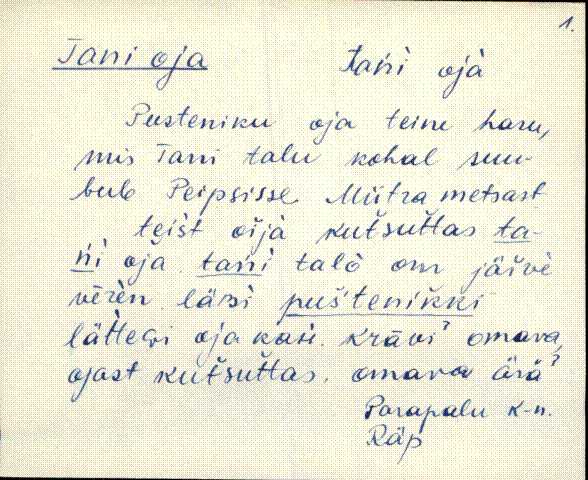 1.
Tani oja tańi ojà
Pusteniku oja teine haru,
mis Tani talu kohal suu-
bub Peipsisse. Mütra metsast
teist oijà kutsuttas ta-
ńi oja. tańi talò om jäŕve
vēren lässi puštenikki
lättewi oja kaśi. krāvi' omava,
ojast kutsuttas. omava ärä'
Parapalu k-n.
Räp